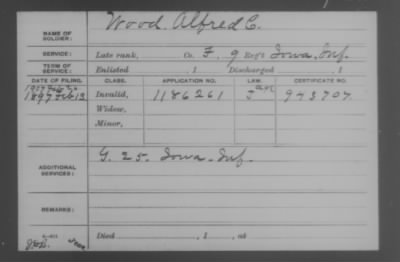 NAME OF SOLDIER: Wood, Alfred C.
SERVICE: Late rank, Co. F, 9 Reg't Iowa Inf.
TERM OF SERVICE: Enlisted , 1 Discharged , 1
DATE OF FILING. CLASS. APPLICATION NO. LAW. CERTIFICATE NO.
1897 Feb 13 Invalid, 1186261 J 943707.
Widow,
Minor,
ADDITIONAL SERVICES: G. 25. Iowa. Inf.
REMARKS:
Died , 1 , at